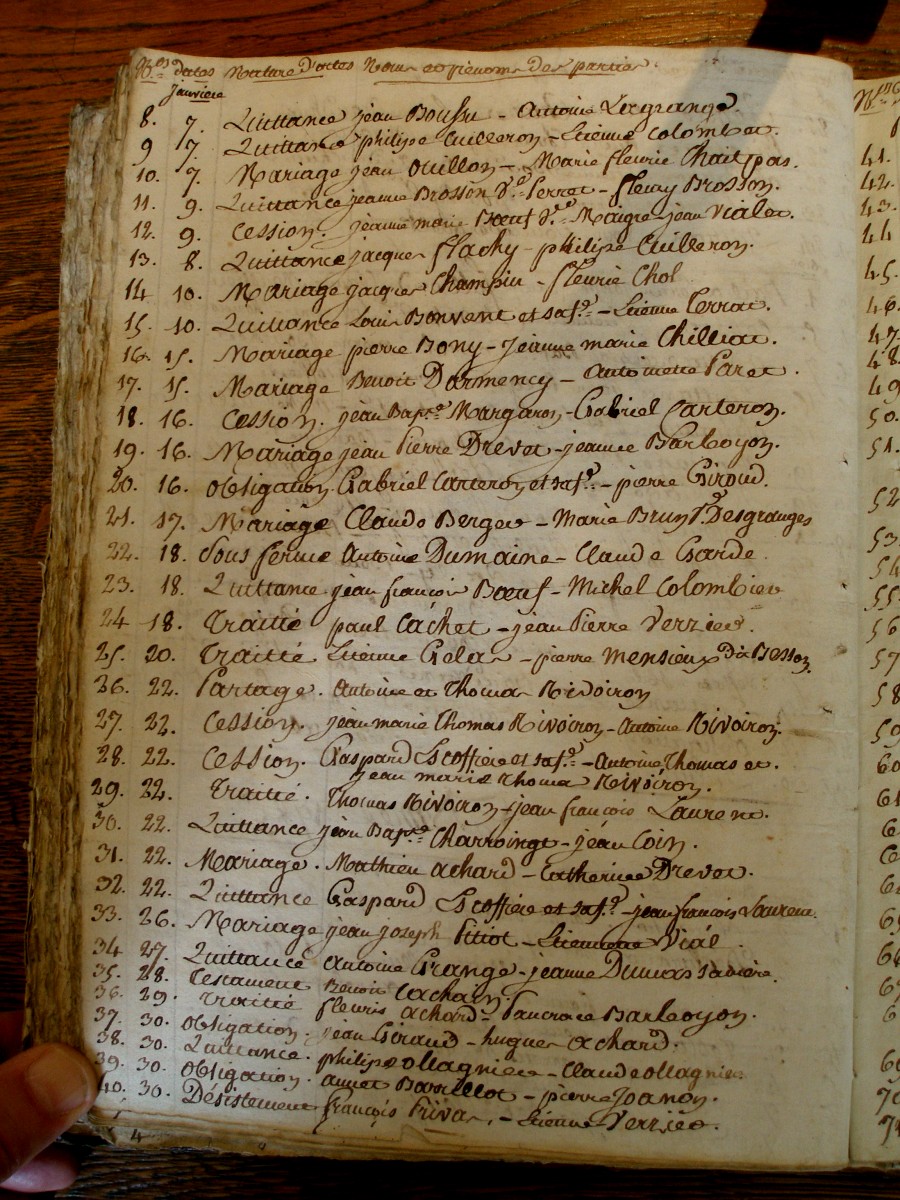 N.os dates Nature D'actes Noms et prenoms des parties.
janvier
8. 7. Quittance jean Boussu - Antoine Lagrange.
9 7. Quittance philipe Cuilleron - Etienne Colombet.
10. 7. Mariage jean Ouillon - Marie fleurie Chaitpas.
11. 9. Quittance jeanne Brosson v.e Perret - fleury Brosson.
12. 9. Cession. jeanne marie Bœuf v.e Maigre jean Vialet.
13. 8. Quittance jacques flachy - philipe Cuilleron.
14 10. Mariage jacques Champin - fleurie Chol
15. 10. Quittance Louis Bonvent et sa f.e - Etienne Terrat.
16. 15. Mariage pierre Bony - Jeanne marie Chilliat.
17. 15. Mariage Benoit Darmency - Antoinette Paret.
18. 16. Cession. jean Bap.te Margaron - Gabriel Carteron.
19. 16. Mariage jean Pierre Drevet - jeanne Barboyon.
20. 16. obligation. Gabriel Carteron et sa f.e - pierre Giroud.
21. 17. Mariage Claude Berger - Marie Brun Desgranges
22. 18. Sous ferme Antoine Dumaine - Claude Garde.
23. 18. Quittance jean françois Bœuf - Michel Colombier
24 18. Traitté paul Cachet - jean Pierre Verzier.
25. 20. Traitté Etienne Gelas - pierre mensieux dit Besson.
26. 22. Partage. Antoine et Thomas Rivoiron
27. 22. Cession. jean marie Thomas Rivoiron - Antoine Rivoiron.
28. 22. Cession. Gaspard Escoffiere et sa f.e - Antoine Thomas et.
jean marie thomas Rivoiron.
29. 22. Traitté. Thomas Rivoiron - jean françois Laurent.
30. 22. Quittance jean Bap.te Charroingt - jean Coin.
31. 22. Mariage. Mathieu achard - Catherine Drevet.
32. 22. Quittance Gaspard Escoffiere et sa f.e - jean françois Laurent.
33. 26. Mariage jean joseph Pitiot - Etiennette Vial.
34 27. Quittance antoine Grange - jeanne Dumas
35. 28. Testament Benoit Cachar.
36. 29. Traitté fleuris achard - Pancrace Barboyon.
37. 30. obligation. jean Giraud - hugues achard.
38. 30. Quittance. philipe ollagnier - Claude ollagnier
39. 30. obligation. annet Barillot - pierre Joanon.
40. 30. Désistement françois Privas. - Etienne Verzier.
4
41.
42.
43.
44
45.
46.
47.
48.
49
50.
51.
52
53.
54
55.
56
57
58
59
60
61